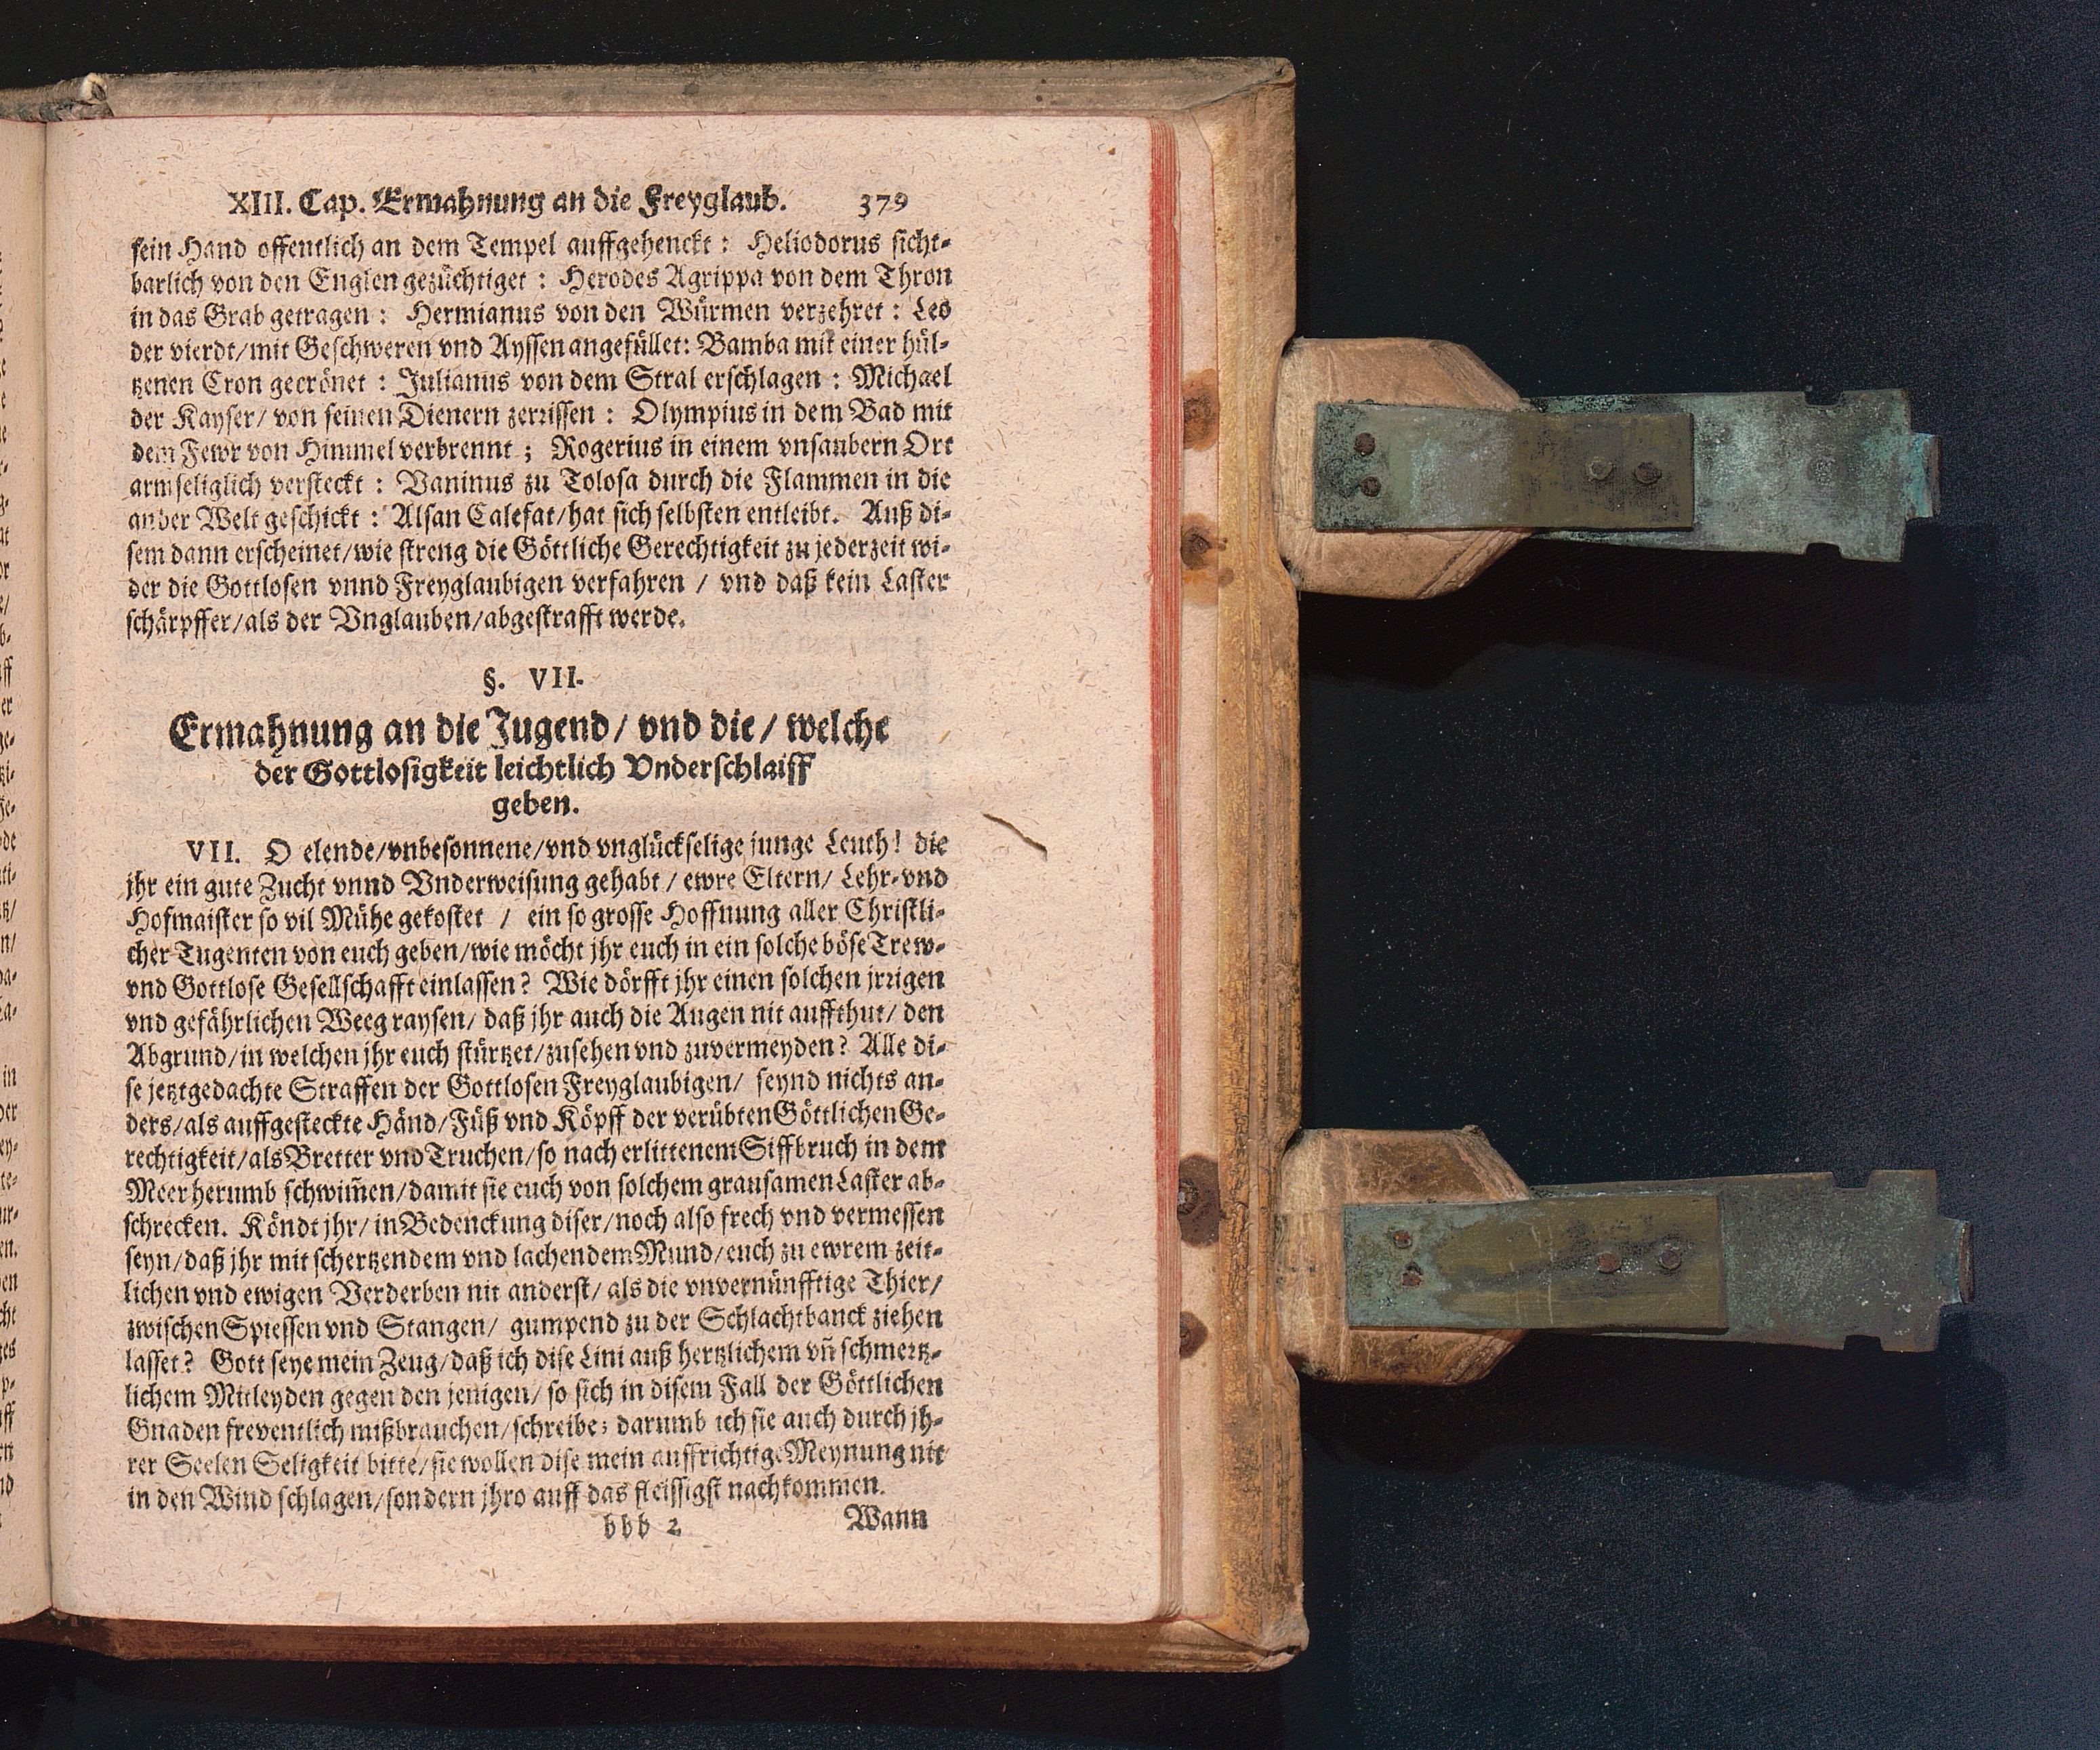 XIII. Cap. Ermahnung an die Freyglaub. 379
sein Hand offentlich an dem Tempel auffgehenckt : Heliodorus sicht-
barlich von den Englen gezüchtiget : Herodes Agrippa von dem Thron
in das Grab getragen : Hermianus von den Würmen verzehret : Leo
der vierdt/mit Geschweren vnd Ayssen angefüllet: Bamba mit einer hül-
tzenen Cron gecrönet : Julianus von dem Stral erschlagen : Michael
der Kayser/ von seinen Dienern zerrissen : Olympius in dem Bad mit
dem Fewr von Himmel verbrennt ; Rogerius in einem vnsaubern Ort
armseliglich versteckt : Vaninus zu Tolosa durch die Flammen in die
ander Welt geschickt : Alsan Calefat/hat sich selbsten entleibt. Auß di-
sem dann erscheinet/wie streng die Göttliche Gerechtigkeit zu jederzeit wi-
der die Gottlosen vnnd Freyglaubigen verfahren / vnd daß kein Laster
schärpffer/als der Vnglauben/abgestrafft werde.
§. VII.
Ermahnung an die Jugend/ vnd die/ welche
der Gottlosigkeit leichtlich Vnderschlaiff
geben.
VII. O elende/vnbesonnene/vnd vnglückselige junge Leuth! die
jhr ein gute Zucht vnnd Vnderweisung gehabt / ewre Eltern/ Lehr-vnd
Hofmaister so vil Mühe gekostet / ein so grosse Hoffnung aller Christli-
cher Tugenten von euch geben/wie möcht jhr euch in ein solche böse Trew-
vnd Gottlose Gesellschafft einlassen? Wie dörfft jhr einen solchen jrrigen
vnd gefährlichen Weeg raysen/ daß jhr auch die Augen nit auffthut/ den
Abgrund/in welchen jhr euch stürtzet/zusehen vnd zuvermeyden? Alle di-
se jetztgedachte Straffen der Gottlosen Freyglaubigen/ seynd nichts an-
ders/als auffgesteckte Händ/Füß vnd Köpff der verübten Göttlichen Ge-
rechtigkeit/als Bretter vnd Truchen/so nach erlittenem Siffbruch in dem
Meer herumb schwim̄en/damit sie euch von solchem grausamen Laster ab-
schrecken. Köndt jhr/ in Bedenckung diser/noch also frech vnd vermessen
seyn/daß jhr mit schertzendem vnd lachendem Mund/euch zu ewrem zeit-
lichen vnd ewigen Verderben nit anderst/ als die vnvernünfftige Thier/
zwischen Spiessen vnd Stangen/ gumpend zu der Schlachtbanck ziehen
lasset? Gott seye mein Zeug/daß ich dise Lini auß hertzlichem vn̄ schmertz-
lichem Mitleyden gegen den jenigen/ so sich in disem Fall der Göttlichen
Gnaden freventlich mißbrauchen/schreibe; darumb ich sie auch durch jh-
rer Seelen Seligkeit bitte/sie wollen dise mein auffrichtige Meynung nit
in den Wind schlagen/sondern jhro auff das fleissigst nachkommen.
bbb 2 Wann